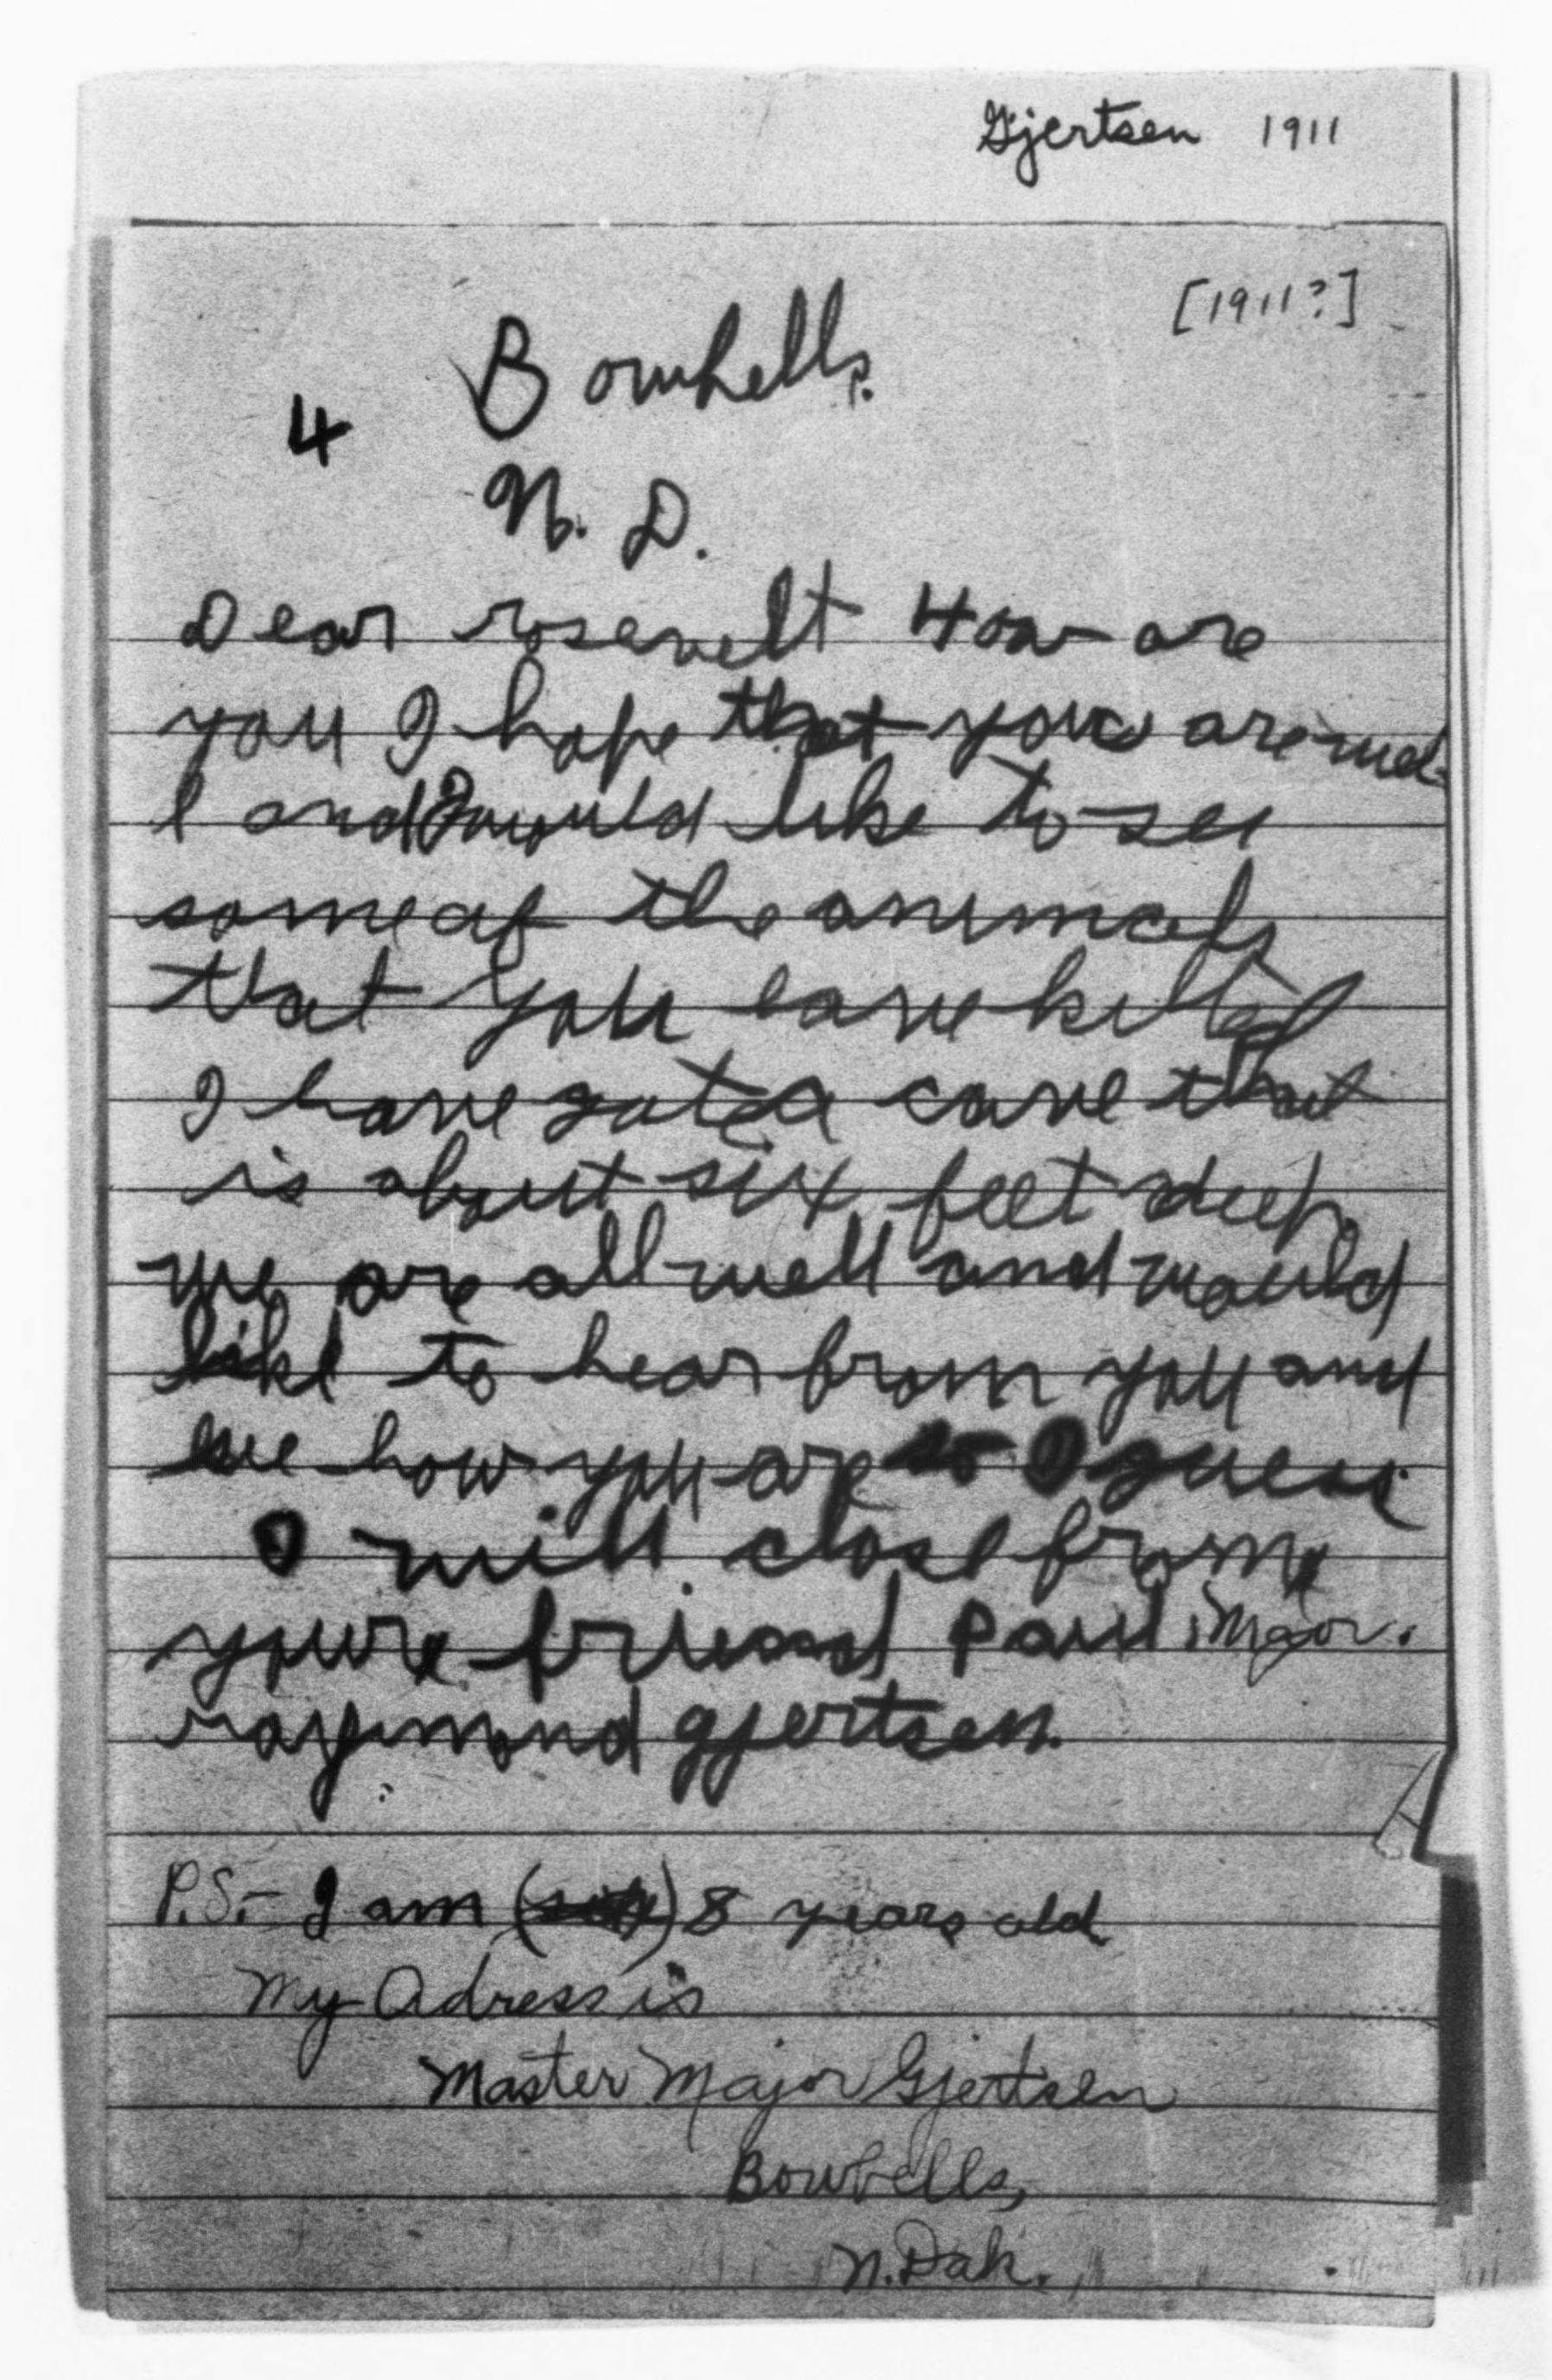 Gjertsen 1911
[1911?]
Bowbells.
4
N. D.
Dear rosevelt How are
you I hope that you are wel-
l and I would like to see
some of the animals
that you have killed
I have got a cave that
is about six feet deep
we are all well and would
like to hear from you and
see how you are so I guess
I will close from
youre friend Paul Major.
raymond gjertsen.
P.S.- I am (six) 8 years old
My Adress is
Master Major Gjertsen
Bowbells,
N. Dak.